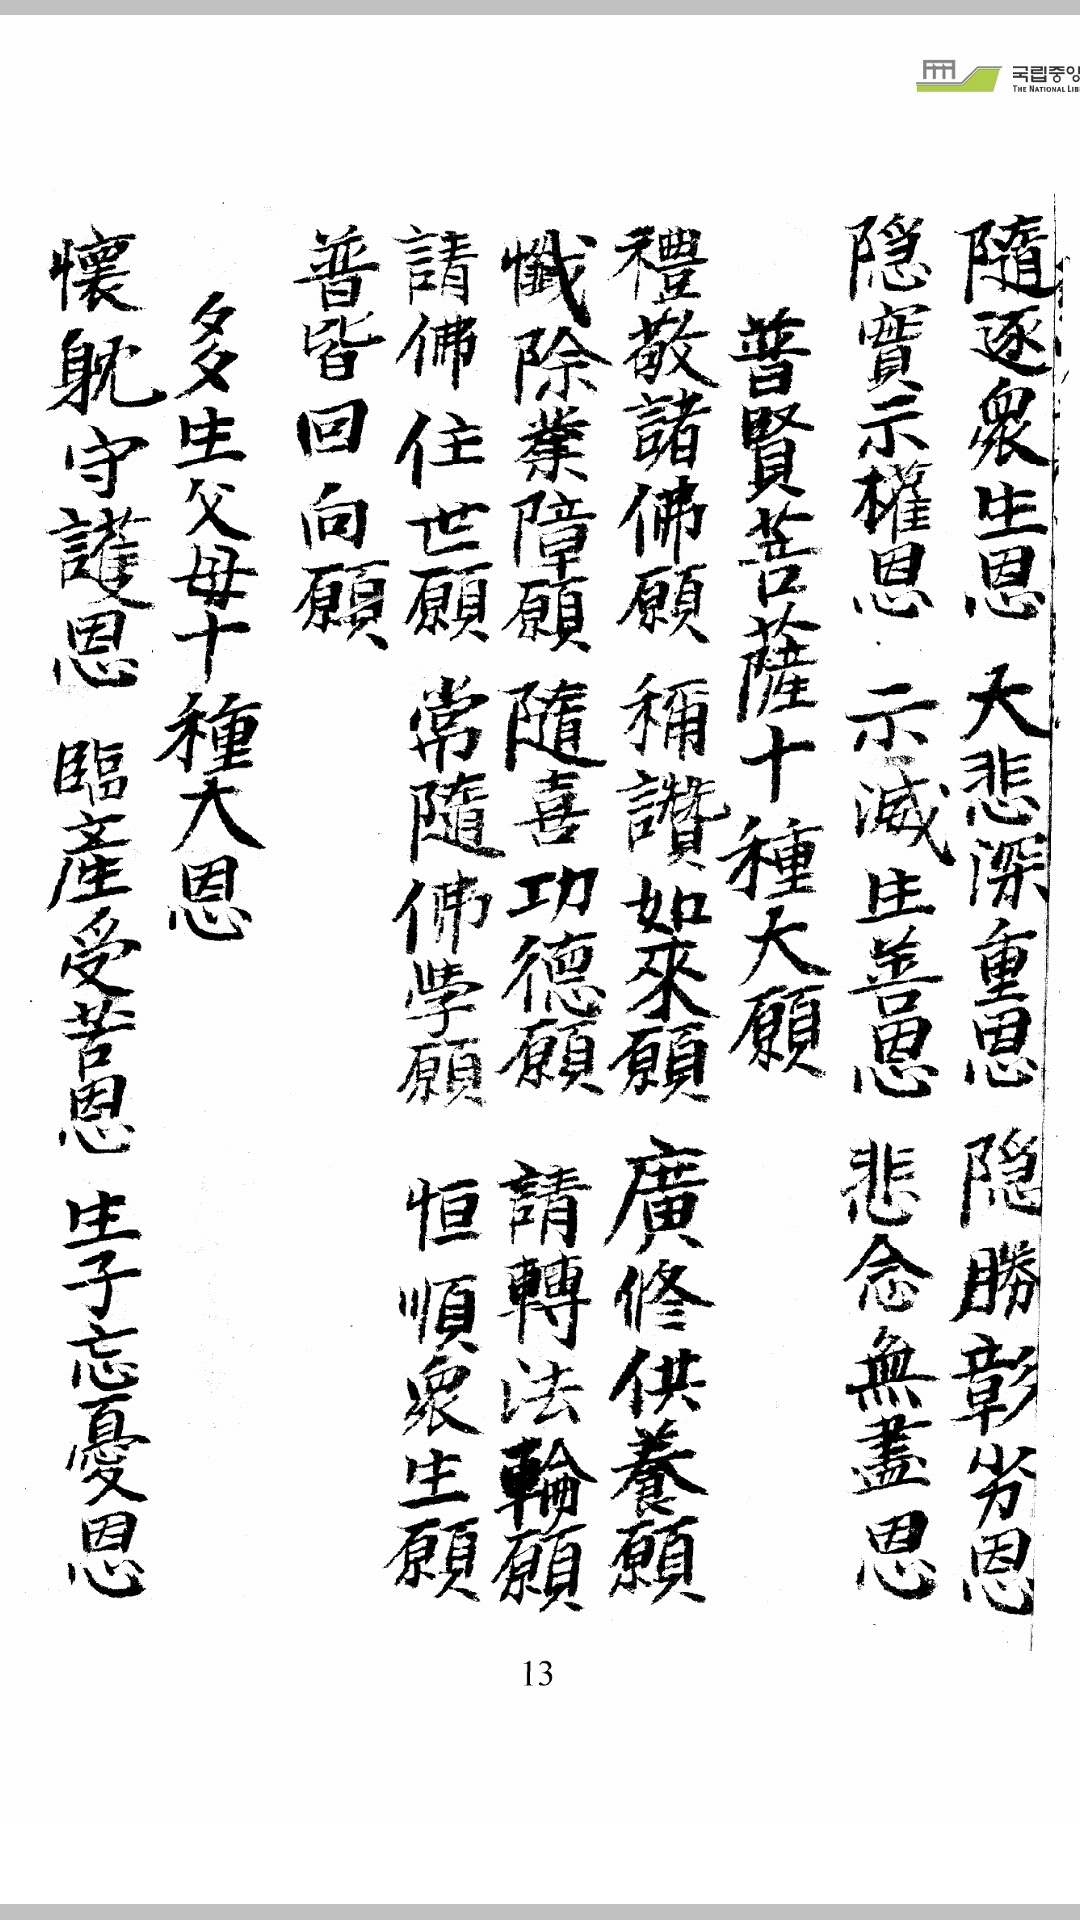 국립중앙
THE NATIONAL LIB
隨逐衆生恩 大悲深重恩 隐勝彰劣恩
隐實示權恩 示滅生善恩 悲念無盡恩
普賢菩薩十種大願
禮敬諸佛願 稱讚如來願 廣修供養願
懺除業障願 隨喜功德願 請轉法輪願
請佛住世願 常隨佛學願 恒順衆生願
普皆回向願
多生父母十種大恩
懷躭守護恩 臨產受苦恩 生子忘憂恩
13